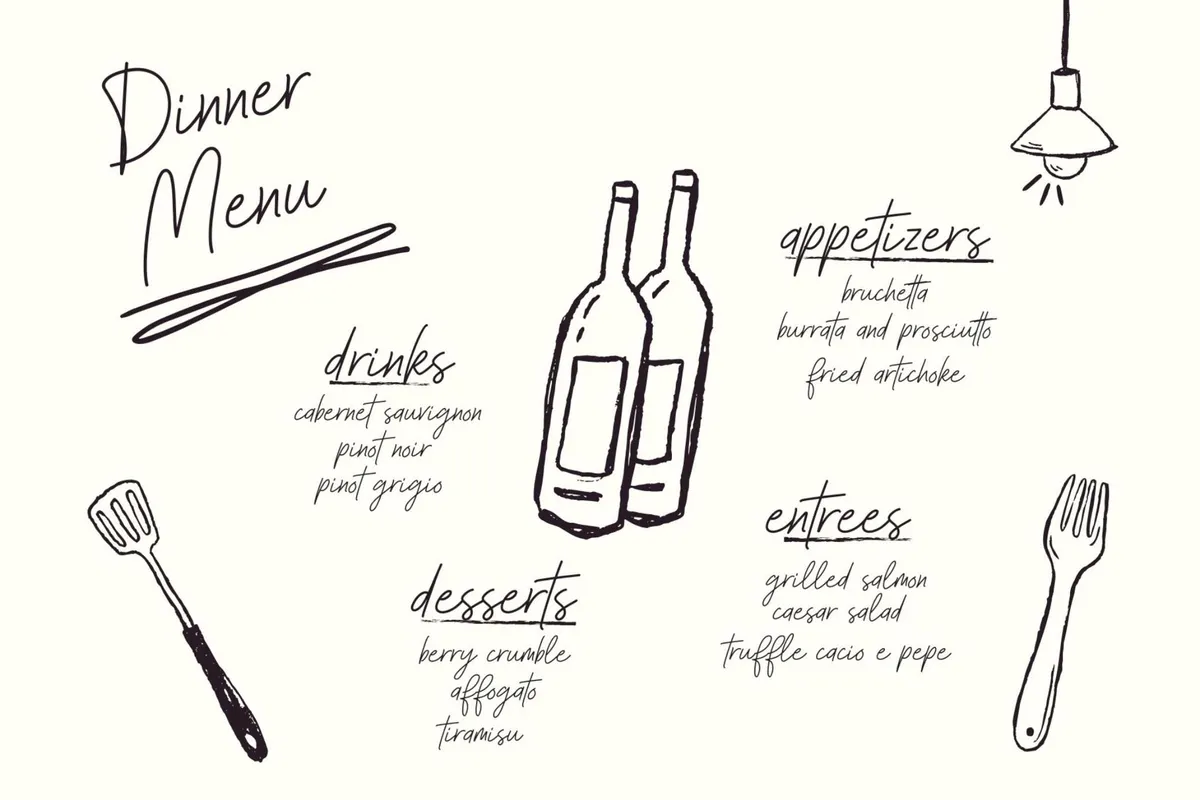 Dinner
Menu
drinks
cabernet sauvignon
pinot noir
pinot grigio
appetizers
bruchetta
burrata and prosciutto
fried artichoke
desserts
berry crumble
affogato
tiramisu
entrees
grilled salmon
caesar salad
truffle cacio e pepe